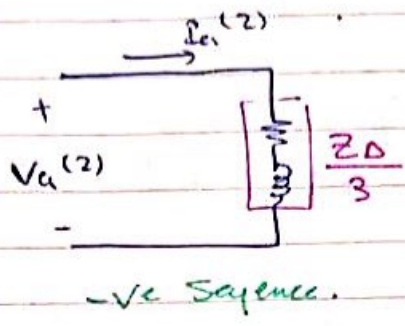 Ia(2)
+
Va(2)
ZΔ
3
-
-ve Seqence.